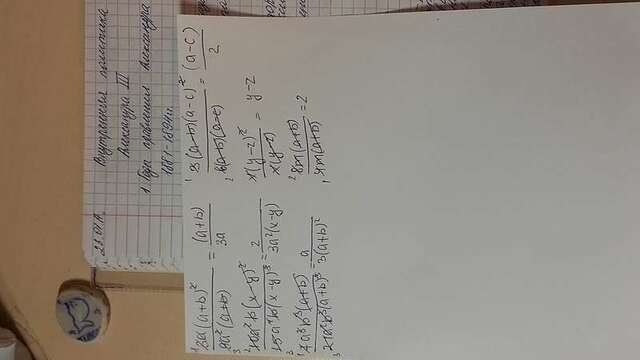 23.01.
Внутренняя политика
Александра III
1. Годы правления Александра
1881-1894гг.
3a(a+b)²/9a²(a+b) = (a+b)/3a
10a²b(x-y)²/15a⁴b(x-y)³ = 2/3a²(x-y)
7a³b³(a+b)/21a²b³(a+b)³ = a/3(a+b)²
3(a-b)(a-c)²/6(a-b)(a-c) = (a-c)/2
x(y-z)²/x(y-z) = y-z
8m(a+b)/4m(a+b) = 2